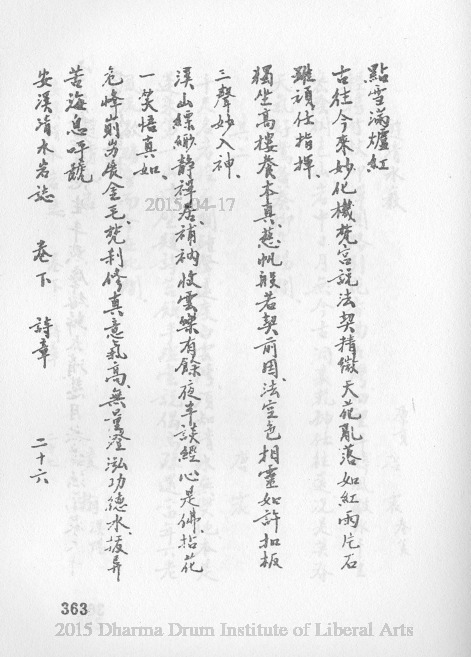 點雪滿爐紅
古往今來妙化機梵宮說法契精微天花亂落如紅雨片石
雖頑仕指揮
獨坐高樓養本真慈帆般若契前因法空色相靈如許扣板
三聲妙入神
溪山縹緲靜禪居補衲收雲樂有餘夜半談經心是佛拈花
一笑悟真如
危峰崱屴展金毛梵剎修真意氣高無量澄泓功德水拔昇
苦海息呼號
安溪清水岩誌 卷下 詩章 二十六
2015-04-17
363
2015 Dharma Drum Institute of Liberal Arts